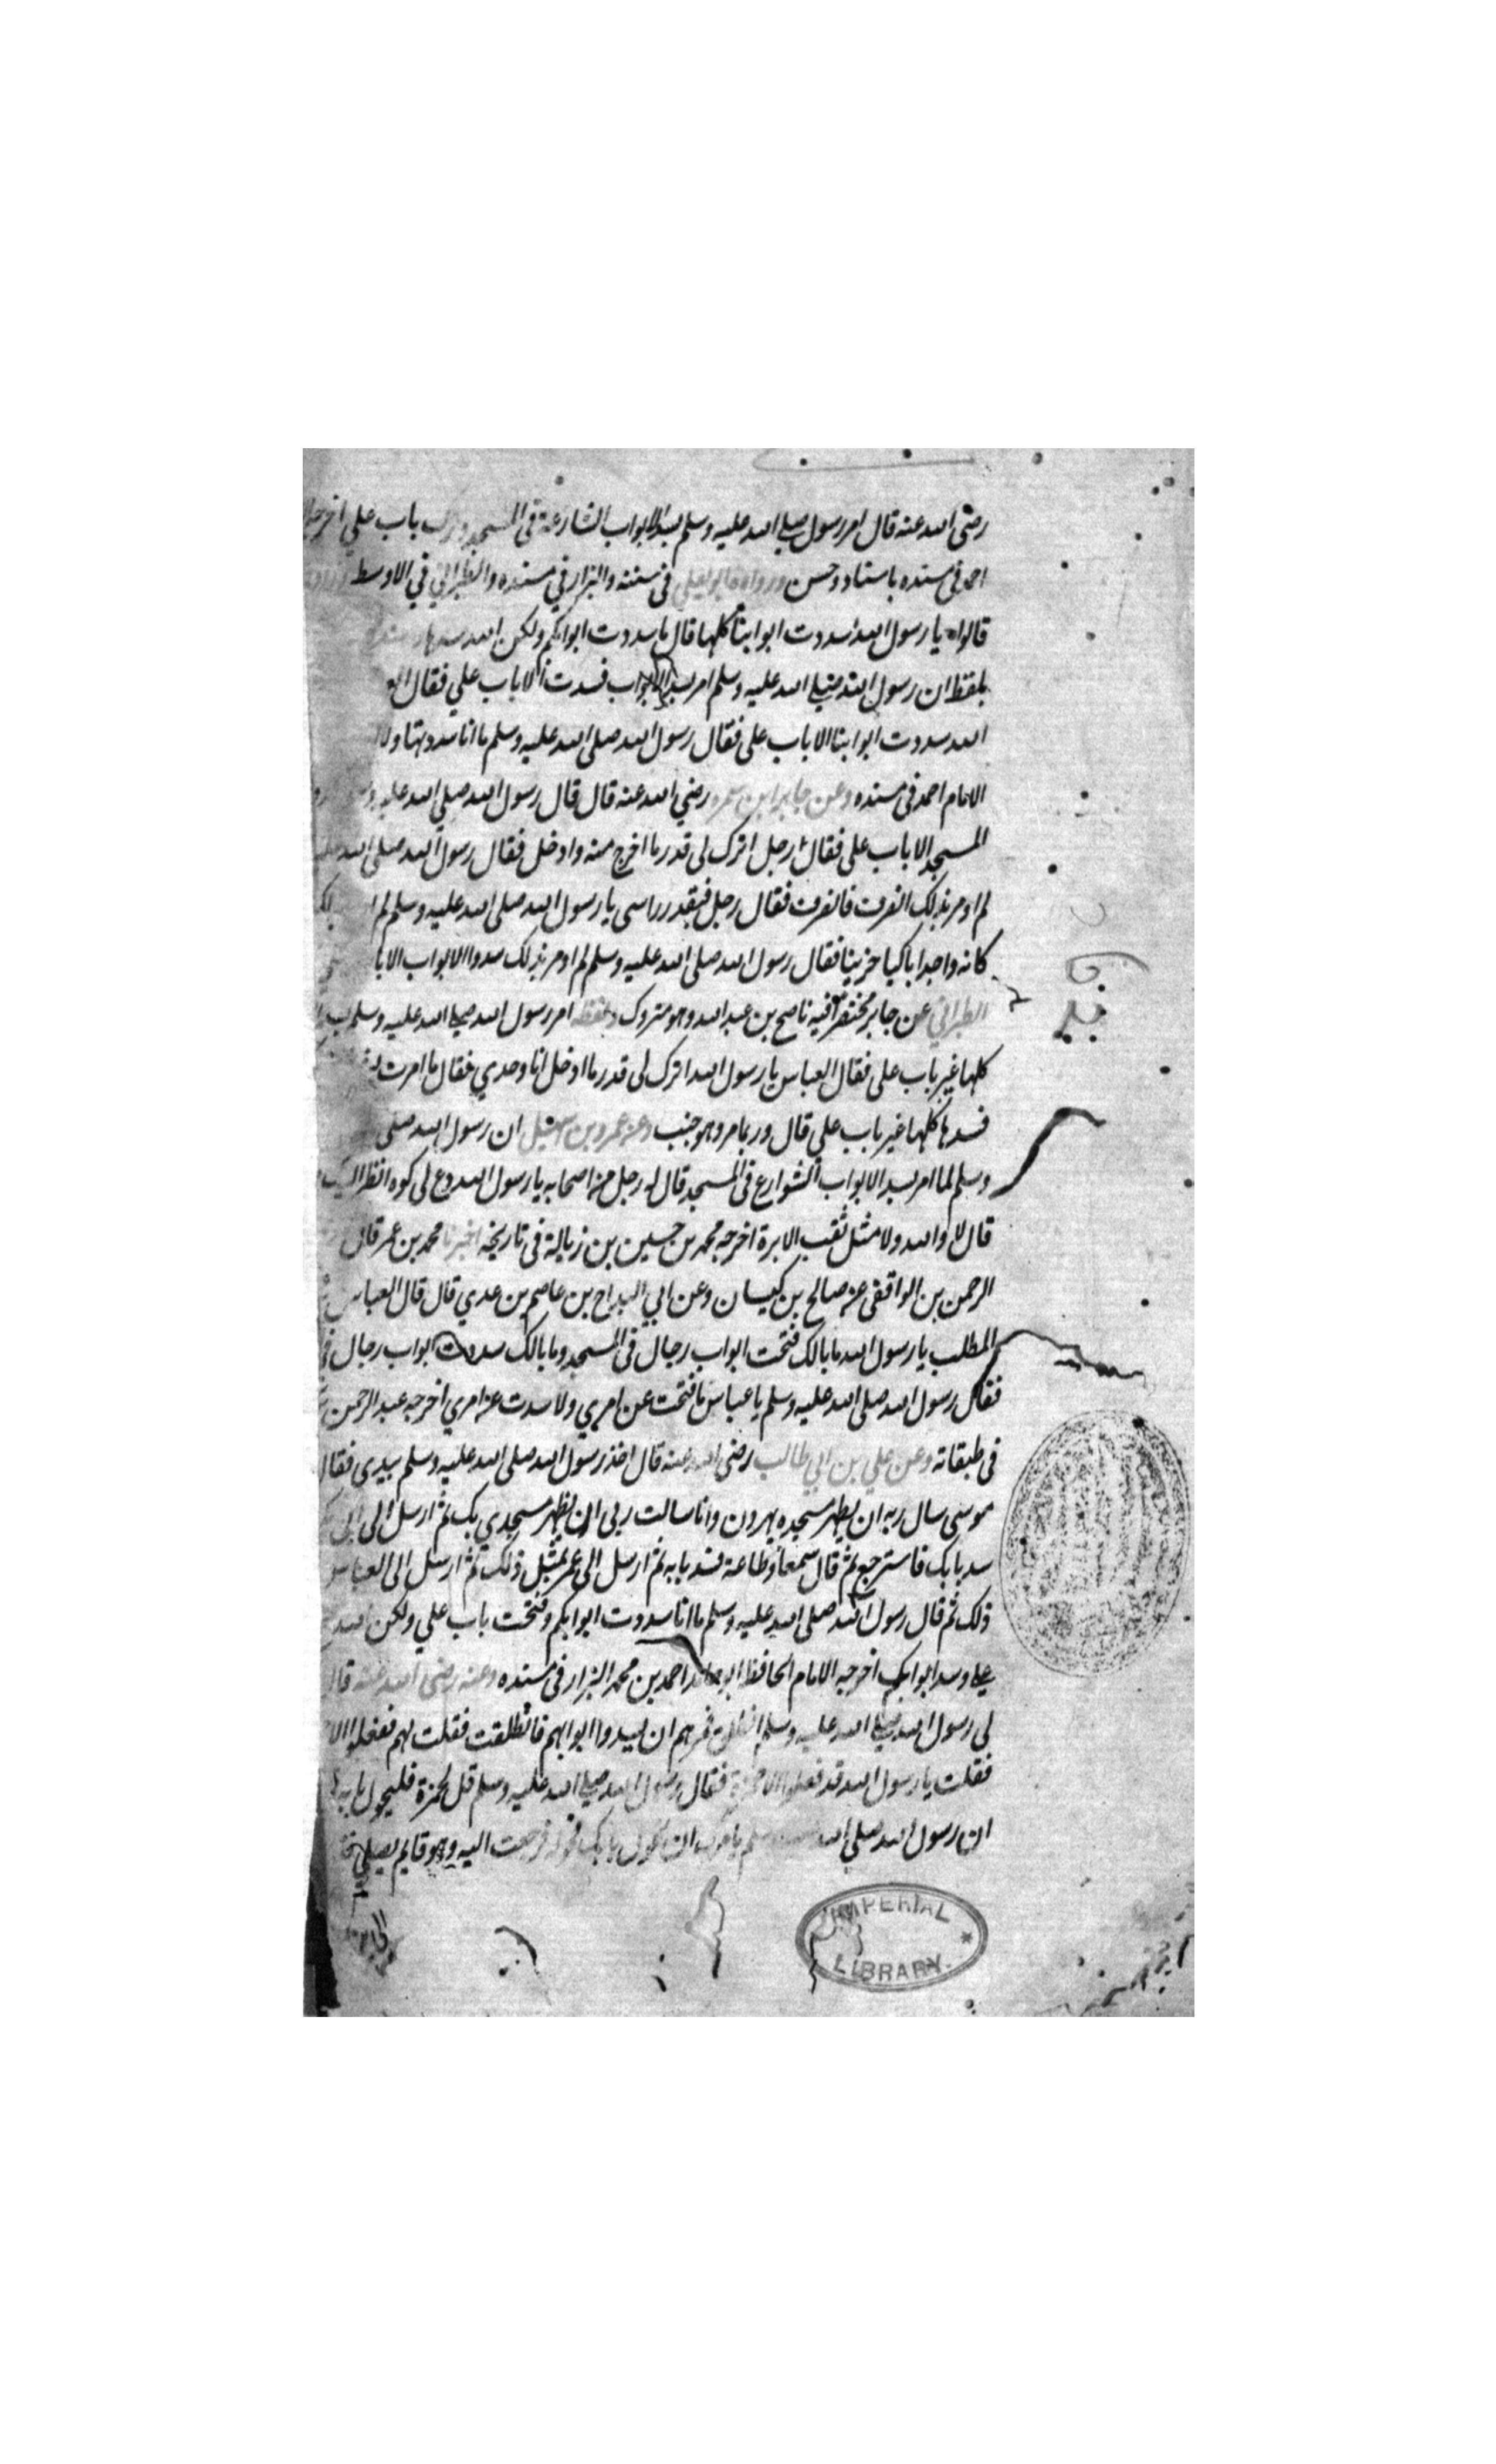 رضى الله عنه قال امر رسول صلى الله عليه وسلم بسد الابواب الشارعة فى المسجد وترك باب علي اخرجه
احمد فى مسنده باسناد حسن ورواه ابو يعلى فى سننه والبزار في مسنده والطبراني في الاوسط
قالوا يا رسول الله سددت ابوابنا كلها قال ما سددت ابوابكم ولكن الله سدها
بلفظ ان رسول الله صلى الله عليه وسلم امر بسد الابواب فسدت الا باب علي فقال
الله سددت ابوابنا الا باب على فقال رسول الله صلى الله عليه وسلم ما انا سددتها ولا
الامام احمد فى مسنده وعن جابر ابن سمره رضي الله عنه قال قال رسول الله صلي الله عليه
المسجد الا باب على فقال رجل اترك لى قدر ما اخرج منه وادخل فقال رسول الله صلى الله
لم اومر بذلك انصرف فانصرف فقال رجل فبقدر راسى يا رسول الله صلى الله عليه وسلم لم
كانه واجدا باكيا حزينا فقال رسول الله صلى الله عليه وسلم لم اومر بذلك سدوا الابواب الا با
الطبراني عن جابر مختصرا فيه ناصح بن عبد الله وهو متروك ولفظه امر رسول الله صلى الله عليه وسلم
كلها غير باب على فقال العباس يا رسول الله اترك لى قدر ما ادخل انا وحدي فقال ما امرت
فسدها كلها غير باب علي قال وربما مر وهو جنب وعن عمرو بن سهيل ان رسول الله صلى
وسلم لما امر بسد الابواب الشوارع فى المسجد قال له رجل من اصحابه يا رسول الله دع لى كوه انظر اليك
قال لا والله ولا مثل ثقب الابرة اخرجه محمد بن حسين بن زبالة فى تاريخه اخبرنا محمد بن عمر قال
الرحمن بن الواقفى عن صالح بن كيسان وعن ابي البداح بن عاصم بن عدي قال قال العباس
المطلب يا رسول الله ما بالك فتحت ابواب رجال فى المسجد وما بالك سددت ابواب رجال
فقال رسول الله صلى الله عليه وسلم يا عباس ما فتحت عن امري ولا سدت عن امري اخرجه عبد الرحمن
فى طبقاته وعن علي بن ابي طالب رضى الله عنه قال اخذ رسول الله صلى الله عليه وسلم بيدى فقال
موسى سال ربه ان يطهر مسجده بهرون وانا سالت ربى ان يطهر مسجدي بك ثم ارسل الى ابى
سد بابك فاسترجع ثم قال سمعا وطاعة فسد بابه ثم ارسل الى عمر بمثل ذلك ثم ارسل الى العباس
ذلك ثم قال رسول الله صلى الله عليه وسلم ما انا سددت ابوابكم وفتحت باب علي ولكن الله
علي وسد ابوابكم اخرجه الامام الحافظ احمد بن محمد البزار فى مسنده وعنه رضى الله عنه قال
لى رسول الله صلى الله عليه وسلم انطلق فمرهم ان يسدوا ابوابهم فانطلقت فقلت لهم ففعلوا الا
فقلت يا رسول الله قد فعلوا الا حمزة فقال رسول الله صلى الله عليه وسلم قل لحمزة فليحول بابه
ان رسول الله صلى الله عليه وسلم يامرك ان تحول بابك فحوله فرجعت اليه وهو قايم يصلي
IMPERIAL
LIBRARY.